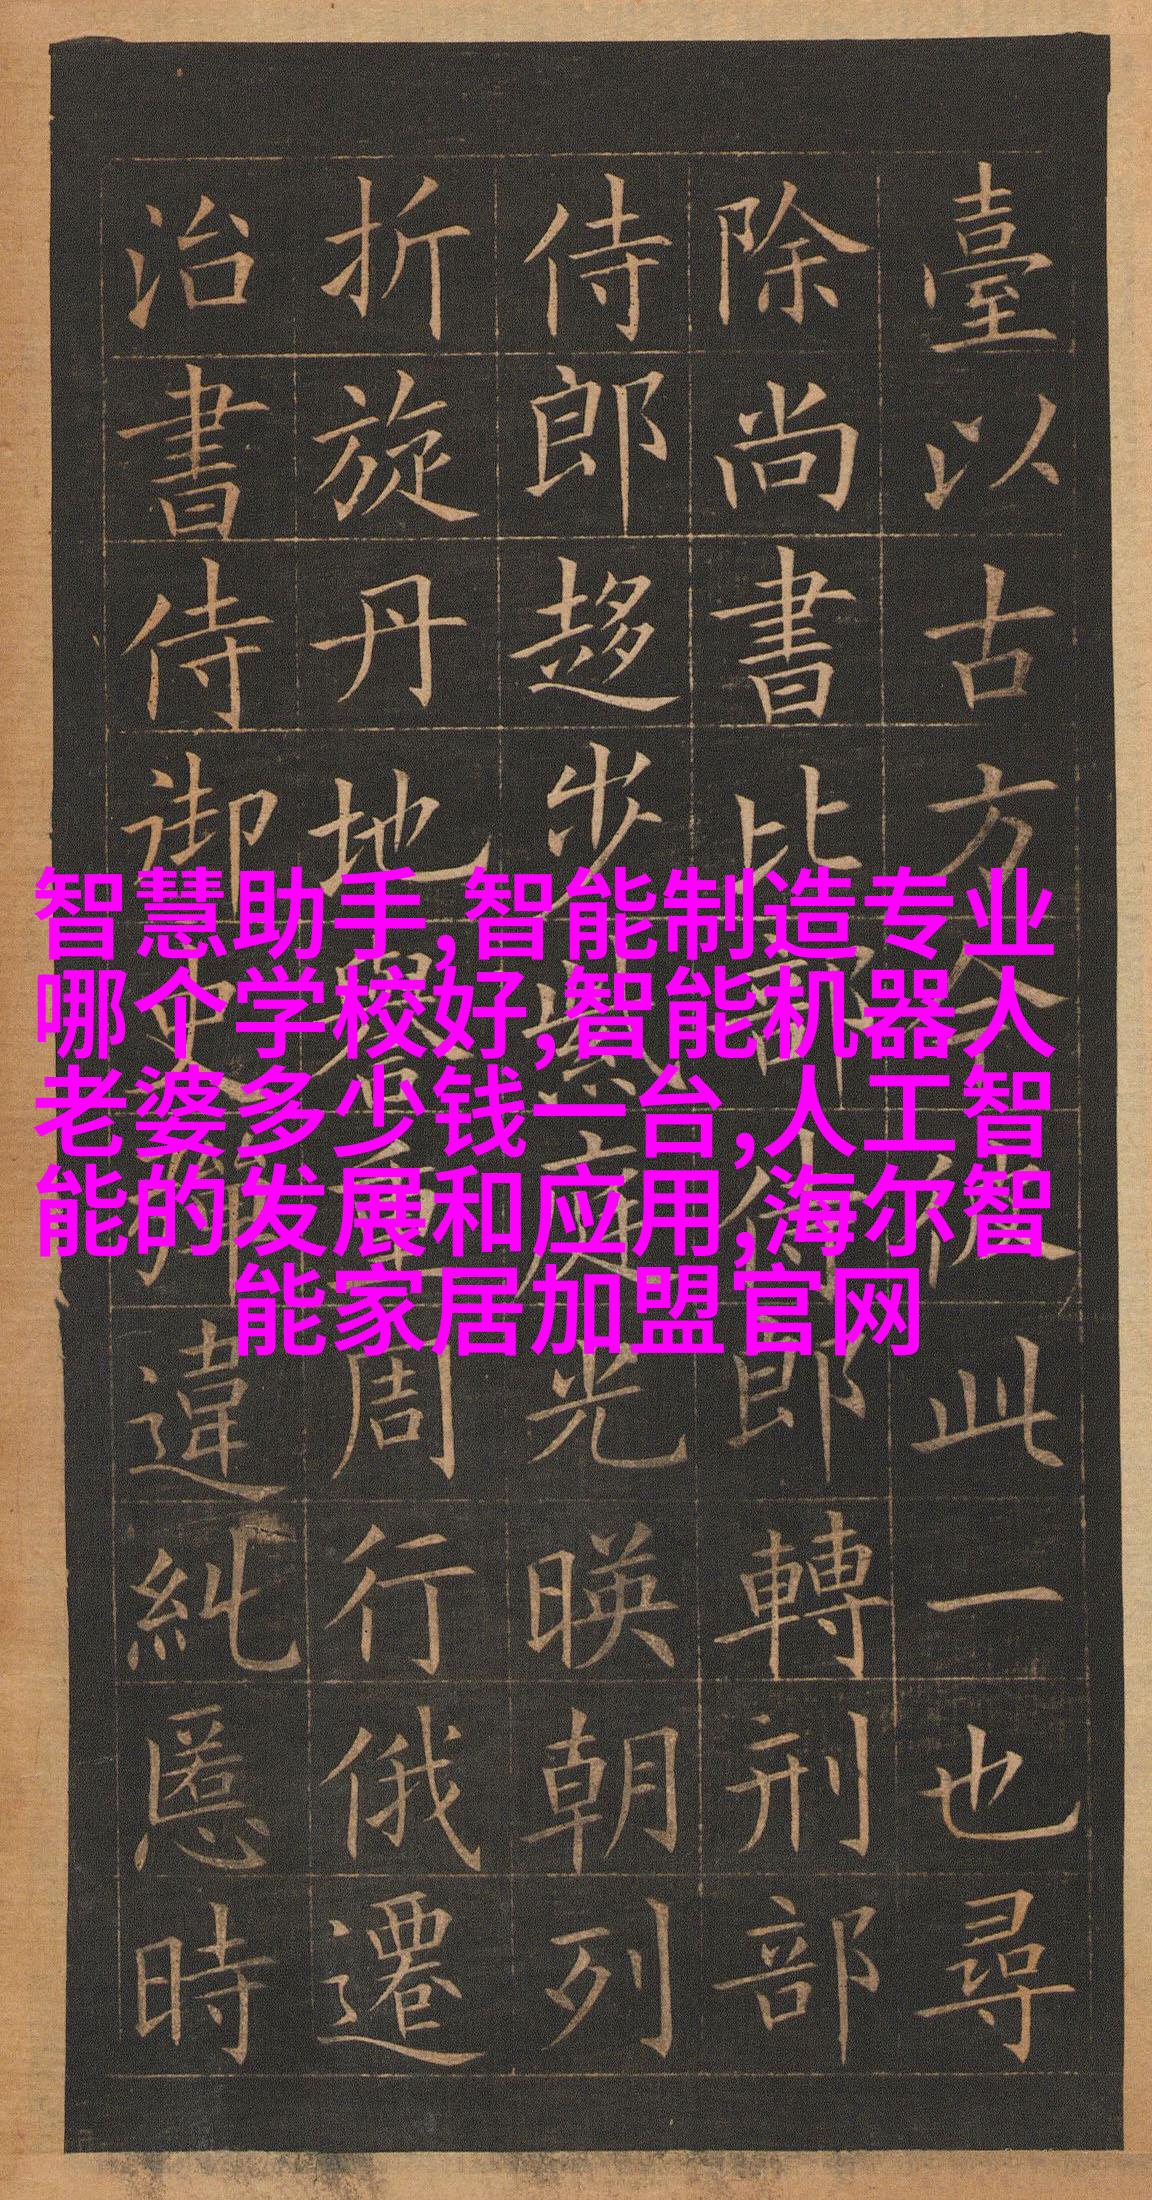 臺以古方今彼此一也尋
除尚書比部侍郎轉刑部
侍郎趍步紫庭光暎朝列
折旋丹地譽重周行俄遷
治書侍御史彈違糺慝時
智慧助手,智能制造专业
哪个学校好,智能机器人
老婆多少钱一台,人工智
能的发展和应用,海尔智
能家居加盟官网